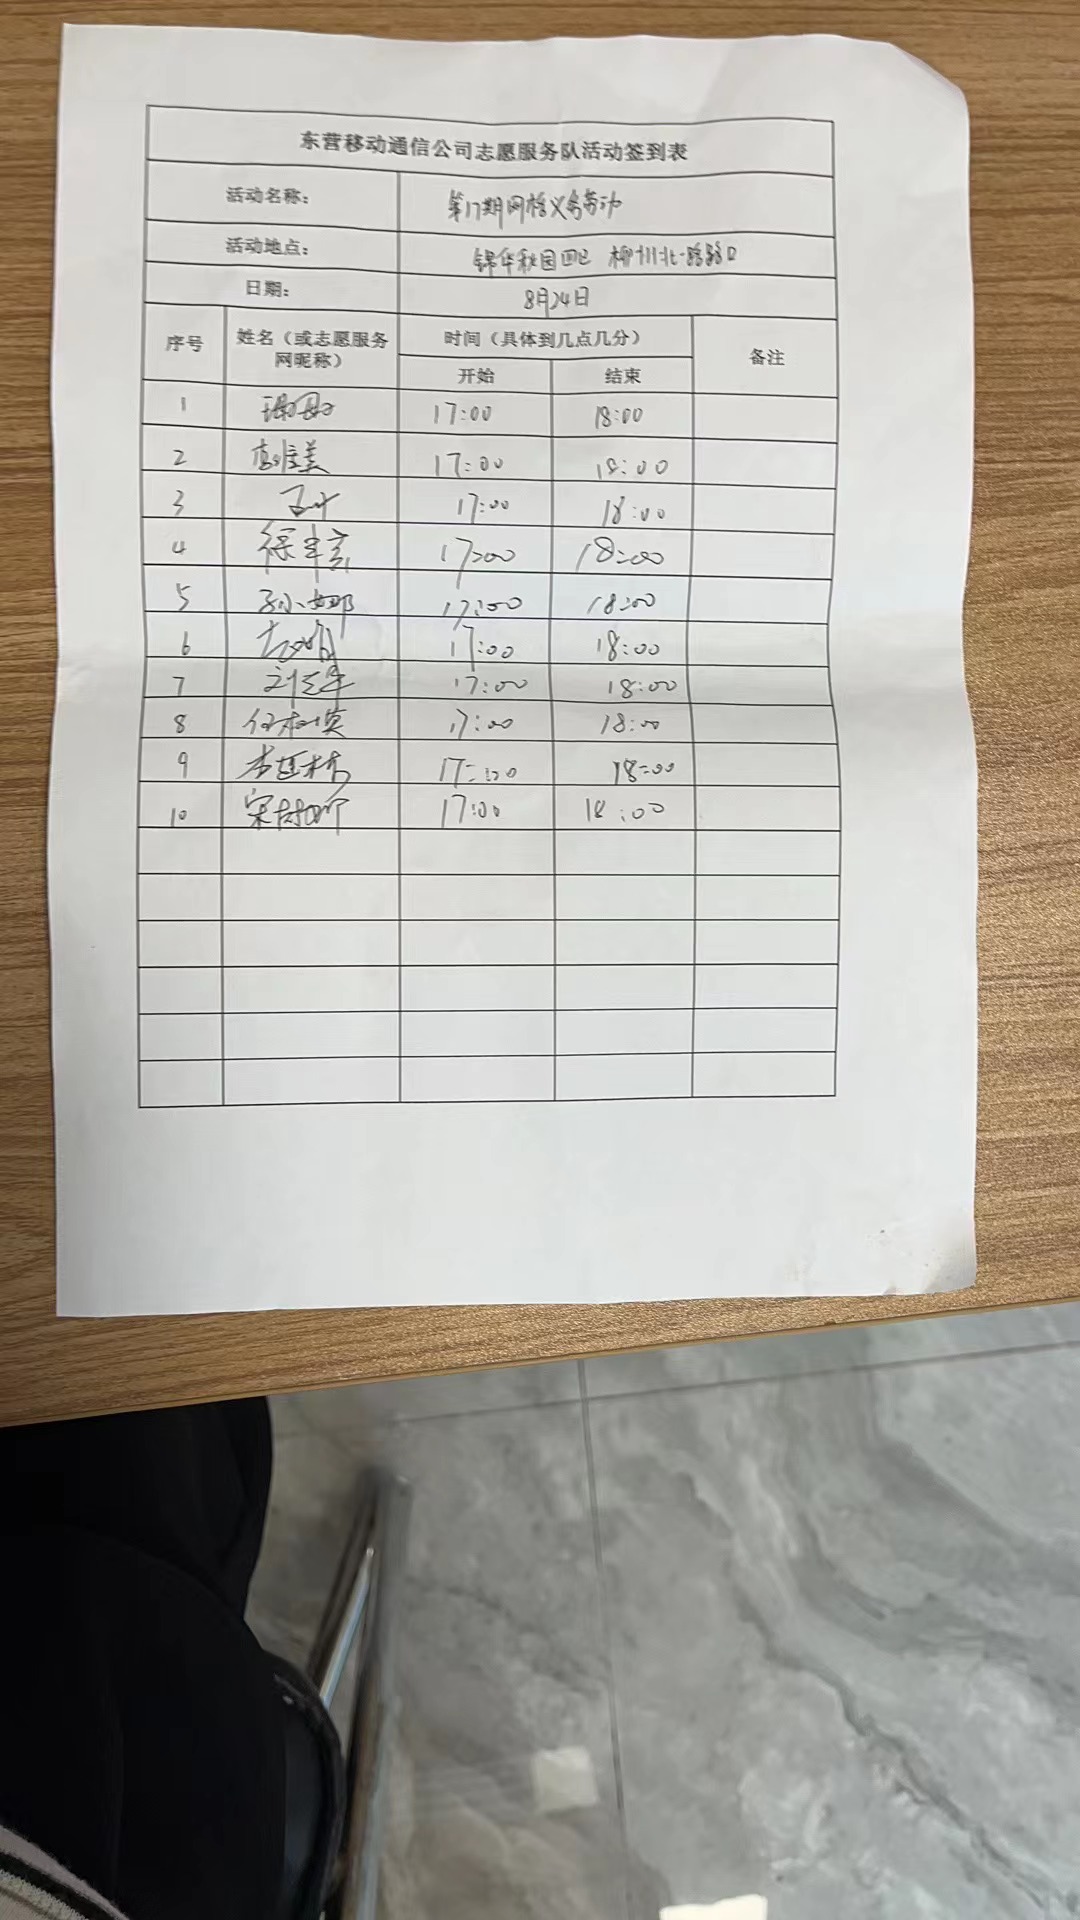 东营移动通信公司志愿服务队活动签到表
活动名称: 第17期网格义务劳动
活动地点: 锦华秋园四区 柳州北一路路口
日期: 8月24日
序号 姓名（或志愿服务网昵称） 时间（具体到几点几分） 备注
开始 结束
1 17:00 18:00
2 17:00 18:00
3 17:00 18:00
4 17:00 18:00
5 孙小娜 17:00 18:00
6 17:00 18:00
7 刘 17:00 18:00
8 17:00 18:00
9 李 17:00 18:00
10 宋 17:00 18:00